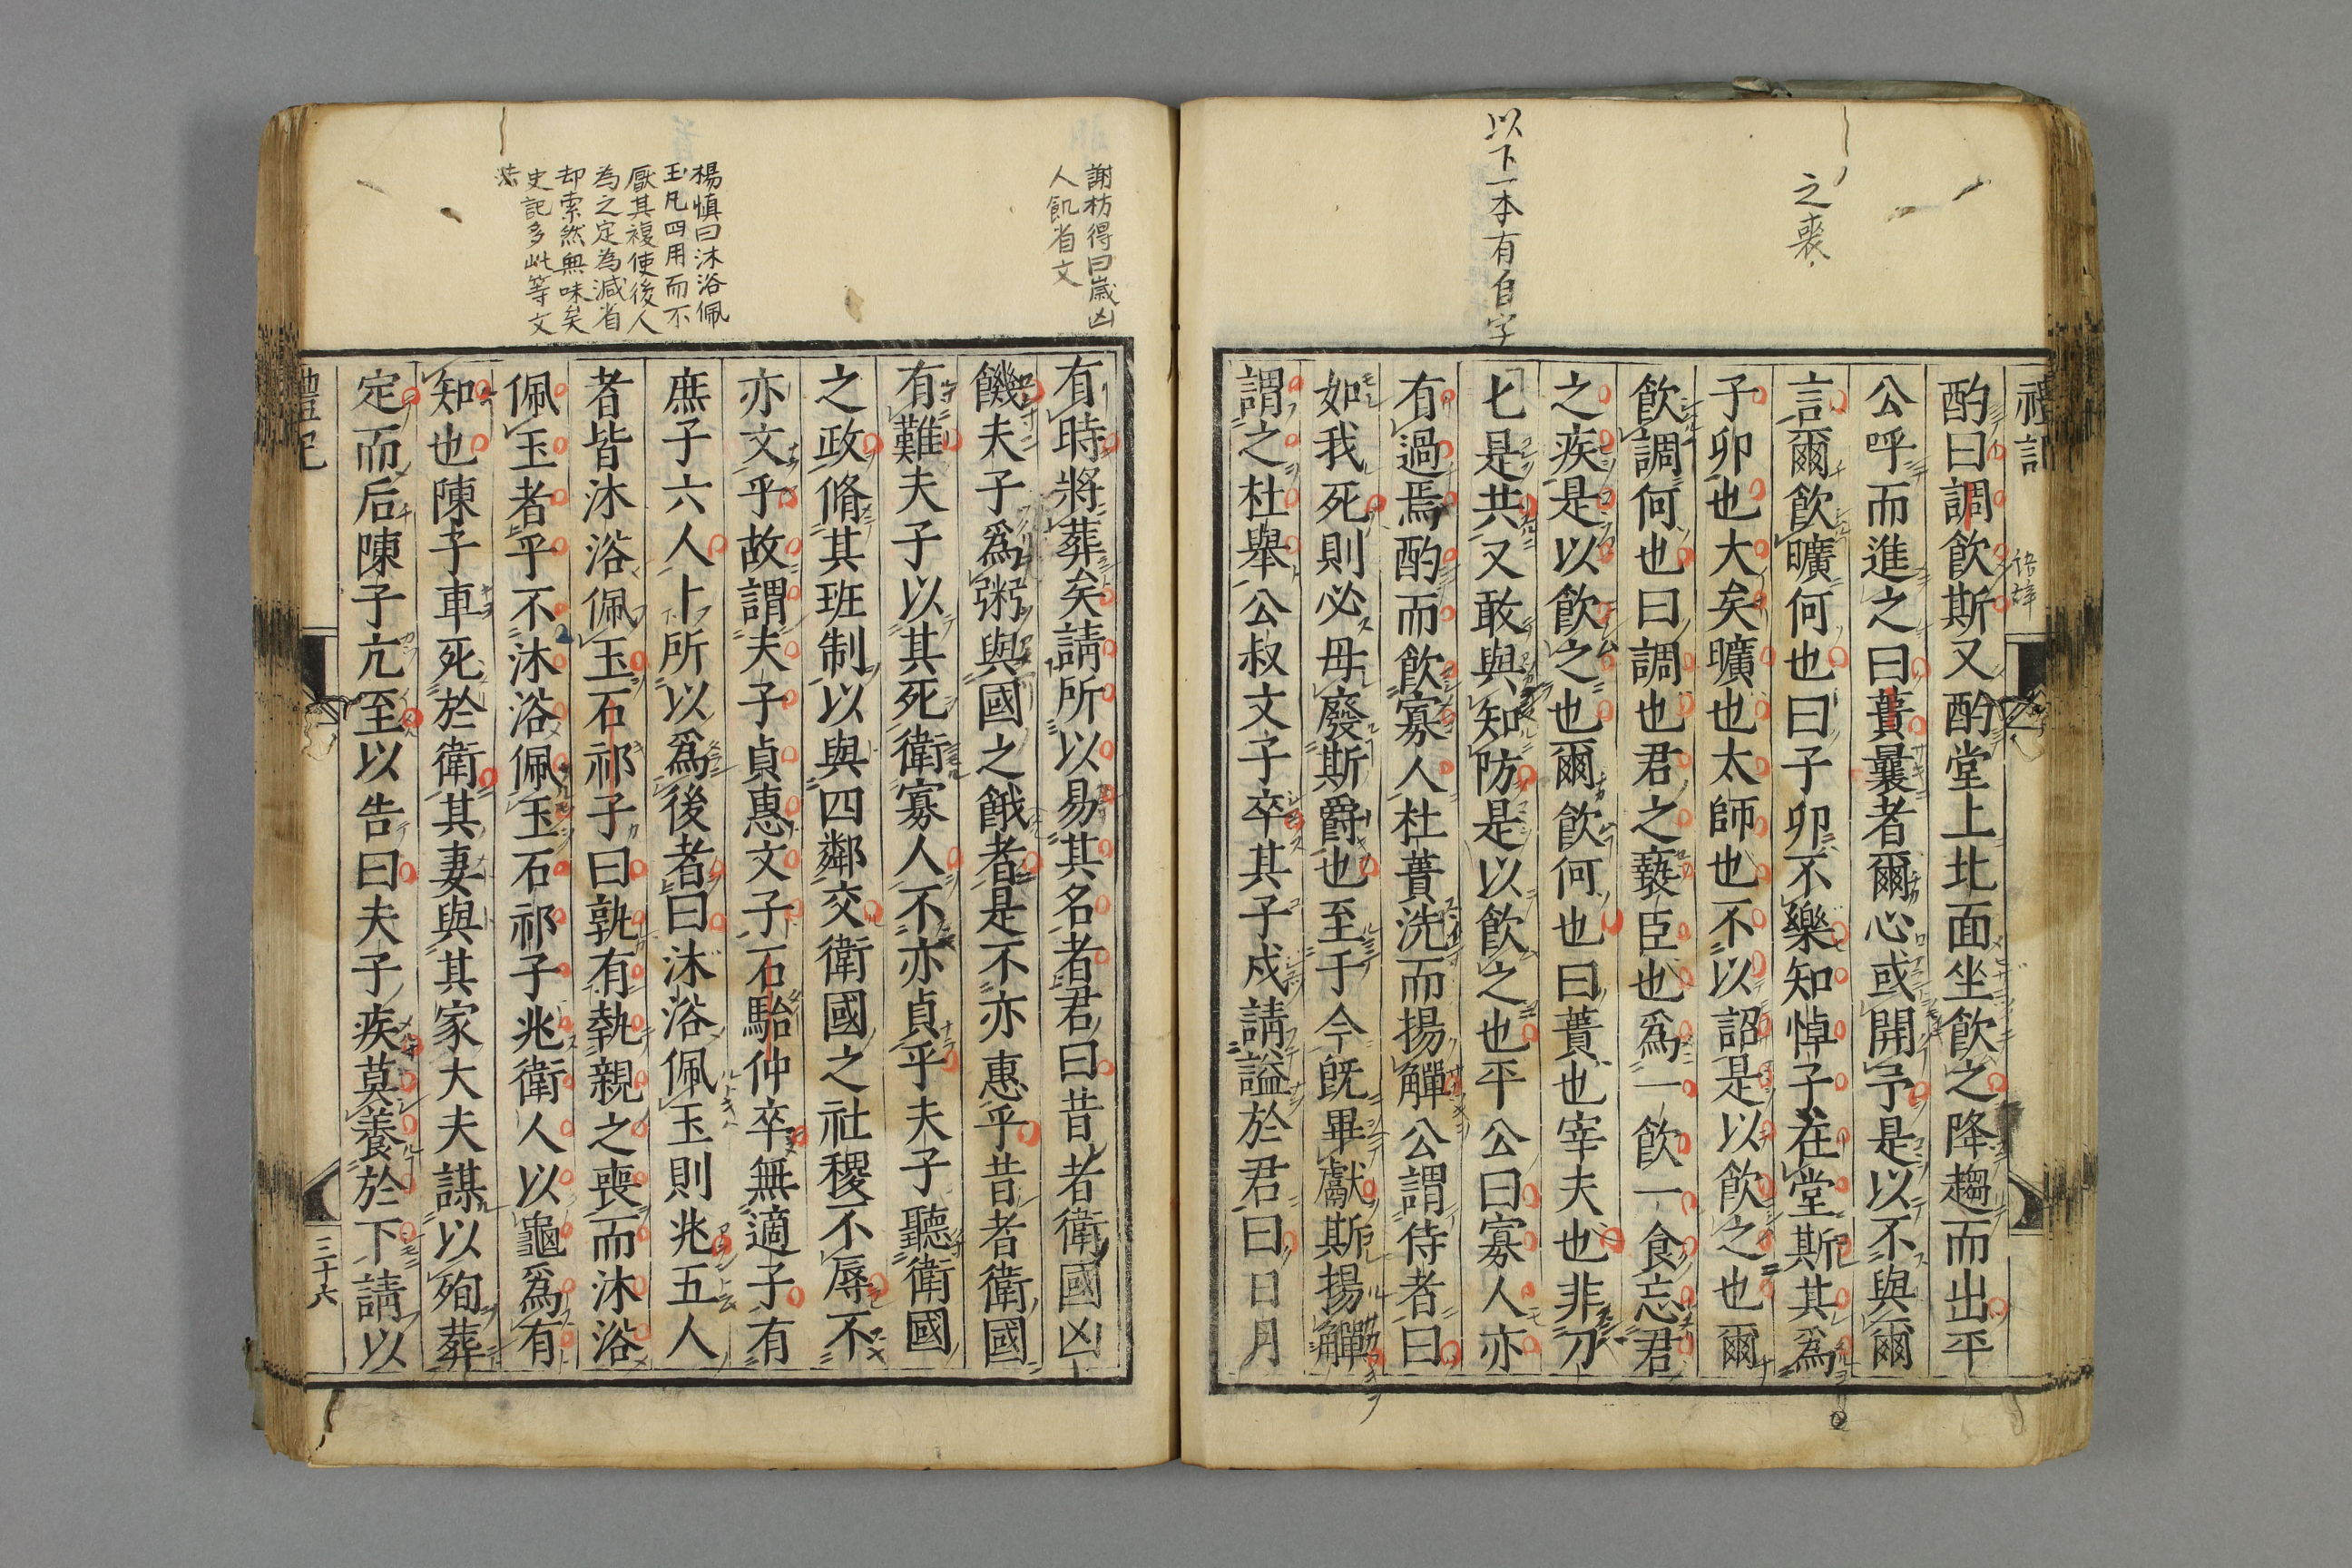 之喪
以下一本有自字
禮記
酌曰調飲斯又酌堂上北面坐飲之降趨而出平
公呼而進之曰蕢曩者爾心或開予是以不與爾
言爾飲曠何也曰子卯不樂知悼子在堂斯其爲
子卯也大矣曠也太師也不以詔是以飲之也爾
飲調何也曰調也君之褻臣也爲一飲一食忘君
之疾是以飲之也爾飲何也曰蕢也宰夫也非刀
匕是共又敢與知防是以飲之也平公曰寡人亦
有過焉酌而飲寡人杜蕢洗而揚觶公謂侍者曰
如我死則必毋廢斯爵也至于今旣畢獻斯揚觶
謂之杜舉公叔文子卒其子戍請謚於君曰日月
謝枋得曰歲凶
人飢省文
楊慎曰沐浴佩
玉凡四用而不
厭其複使後人
為之定為減省
却索然無味矣
史記多此等文
法
有時將葬矣請所以易其名者君曰昔者衛國凶
饑夫子爲粥與國之餓者是不亦惠乎昔者衛國
有難夫子以其死衛寡人不亦貞乎夫子聽衛國
之政脩其班制以與四鄰交衛國之社稷不辱不
亦文乎故謂夫子貞惠文子石駘仲卒無適子有
庶子六人卜所以爲後者曰沐浴佩玉則兆五人
者皆沐浴佩玉石祁子曰孰有執親之喪而沐浴
佩玉者乎不沐浴佩玉石祁子兆衛人以龜爲有
知也陳子車死於衛其妻與其家大夫謀以殉葬
定而后陳子亢至以告曰夫子疾莫養於下請以
禮記
三十六